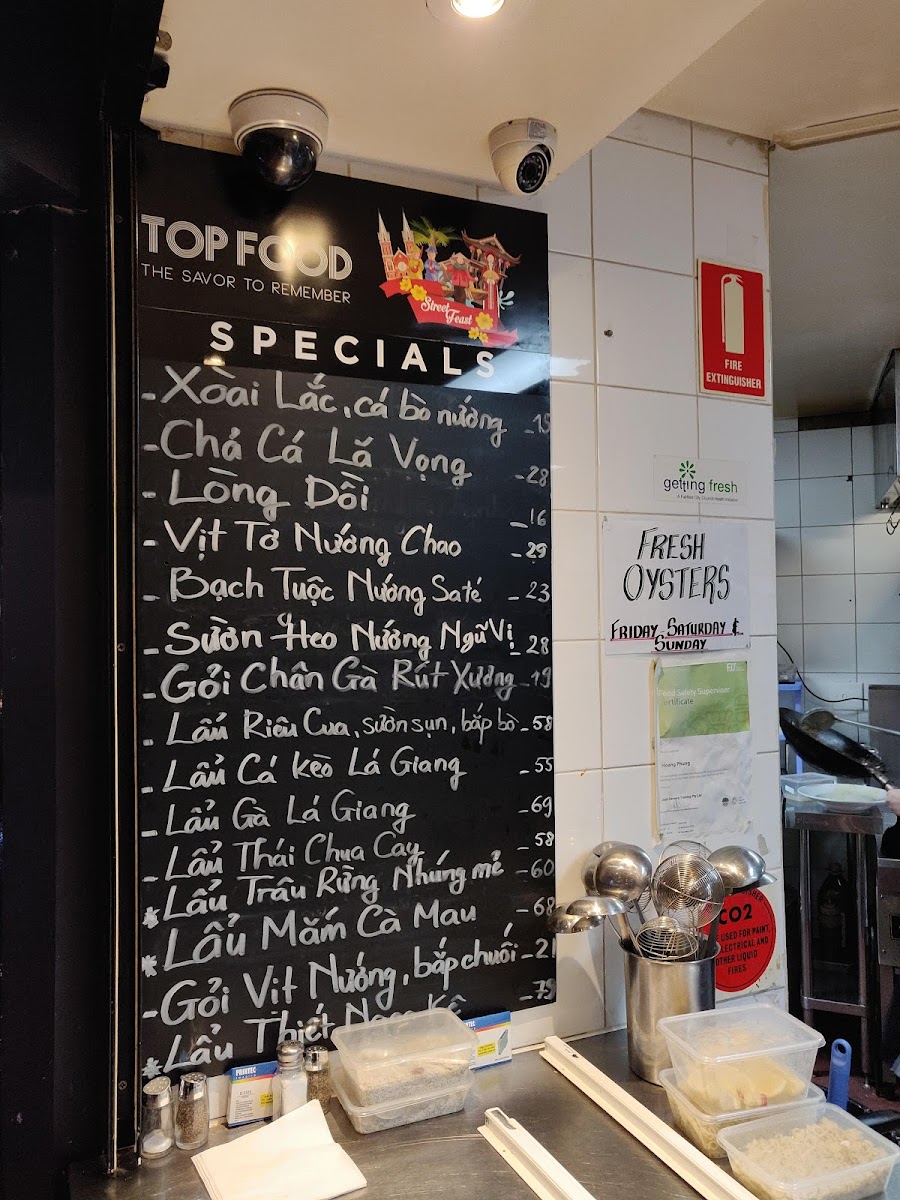 TOP FOOD
THE SAVOR TO REMEMBER
Street
Feast
SPECIALS
- Xoài Lắc, cá bò nướng - 15
- Chả Cá Lã Vọng - 28
- Lòng Dồi - 16
- Vịt Tơ Nướng Chao - 29
- Bạch Tuộc Nướng Saté - 23
- Sườn Heo Nướng Ngũ Vị - 28
- Gỏi Chân Gà Rút Xương - 19
- Lẩu Riêu Cua, sườn sụn, bắp bò - 58
- Lẩu Cá Kèo Lá Giang - 55
- Lẩu Gà Lá Giang - 69
- Lẩu Thái Chua Cay - 58
* Lẩu Trâu Rừng Nhúng mẻ - 60
* Lẩu Mắm Cà Mau - 68
- Gỏi Vịt Nướng, bắp chuối - 21
* Lẩu - 79
FIRE
EXTINGUISHER
getting fresh
A Fairfield City Council Health Initiative
FRESH
OYSTERS
FRIDAY, SATURDAY &
SUNDAY
Food Safety Supervisor
Certificate
Hoang Phung
CO2
USED FOR PAINT,
ELECTRICAL AND
OTHER LIQUID
FIRES
PRINTEC